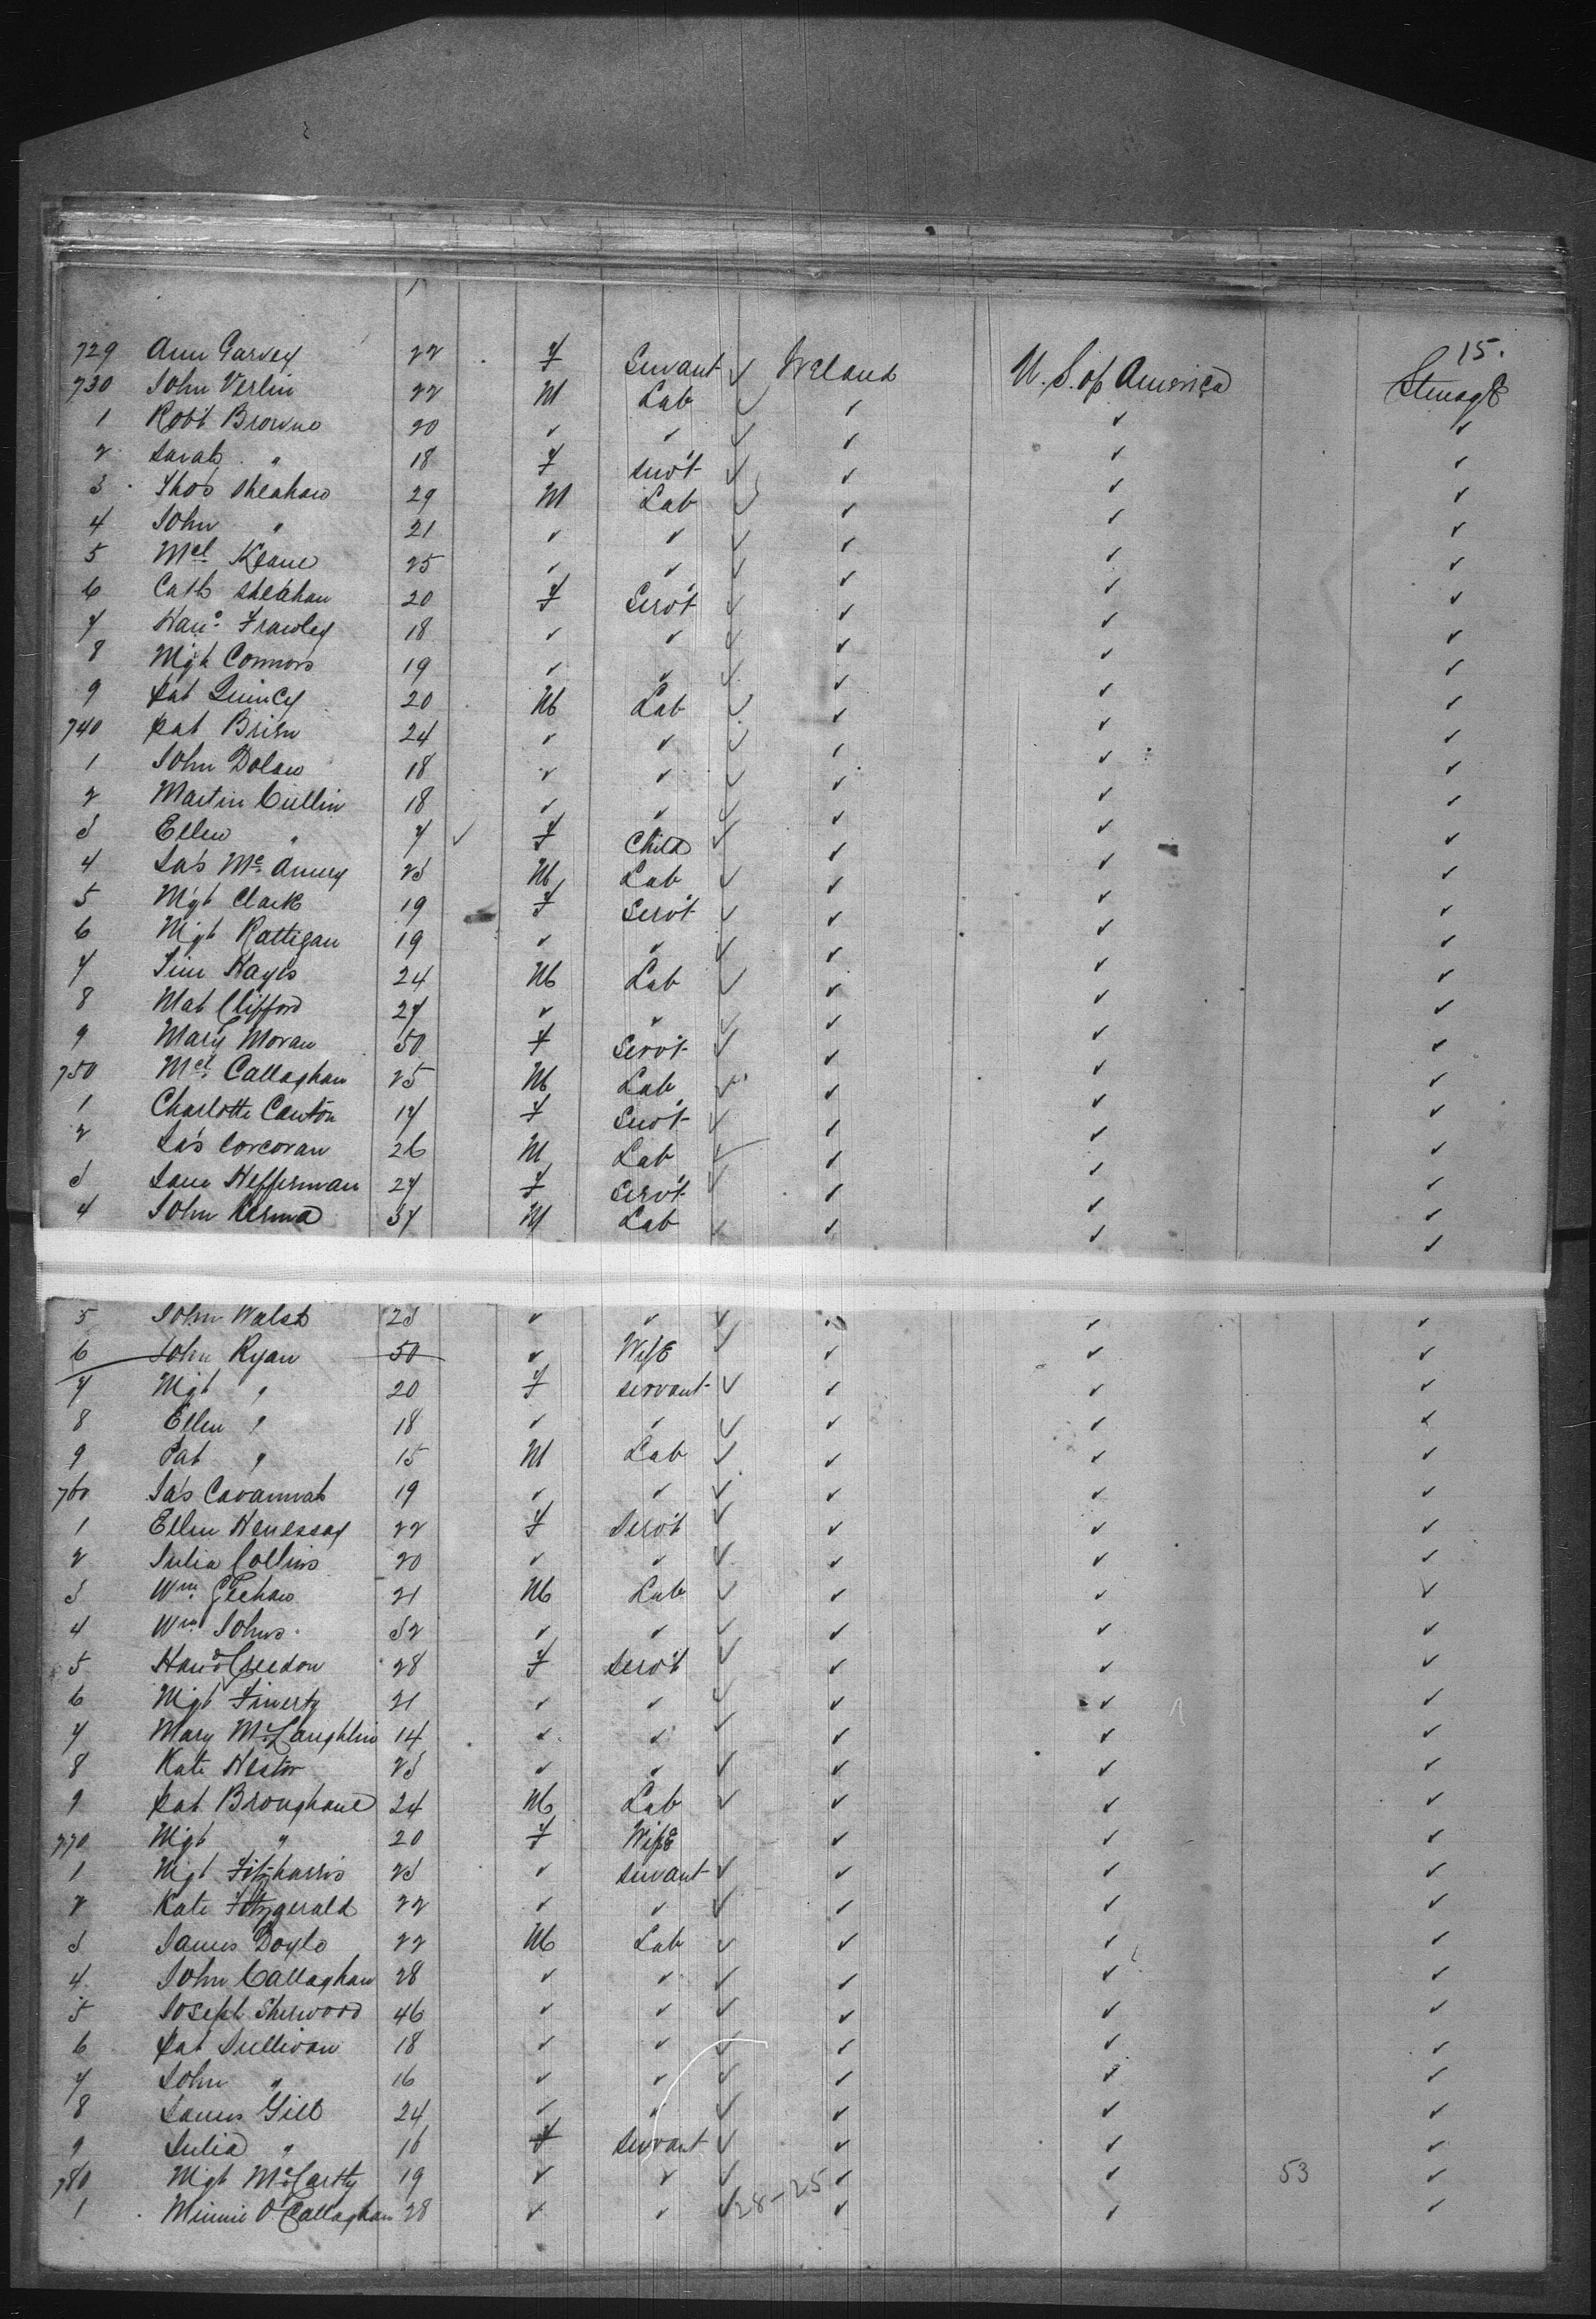 15.
729 Ann Garvey 22 F Servant ✓ Ireland U. S. of America Steerage
730 John Verlin 22 M Lab ✓ ✓ ✓ ✓
1 Robt Browne 20 ✓ ✓ ✓ ✓ ✓ ✓
2 Sarah " 18 F Servt ✓ ✓ ✓ ✓
3 Thos Sheahan 29 M Lab ✓ ✓ ✓ ✓
4 John " 21 ✓ ✓ ✓ ✓ ✓ ✓
5 Mcl Keane 25 ✓ ✓ ✓ ✓ ✓ ✓
6 Cath Sheahan 20 F Servt ✓ ✓ ✓ ✓
7 Hano Frawley 18 ✓ ✓ ✓ ✓ ✓ ✓
8 Mgt Connors 19 ✓ ✓ ✓ ✓ ✓ ✓
9 Pat Quincy 20 M Lab ✓ ✓ ✓ ✓
740 Pat Brien 24 ✓ ✓ ✓ ✓ ✓ ✓
1 John Dolan 18 ✓ ✓ ✓ ✓ ✓ ✓
2 Martin Cullin 18 ✓ ✓ ✓ ✓ ✓ ✓
3 Ellen " 7 ✓ F Child ✓ ✓ ✓ ✓
4 Jas Mc 23 M Lab ✓ ✓ ✓ ✓
5 Mgt Clark 19 F Servt ✓ ✓ ✓ ✓
6 Mgt Rattigan 19 ✓ ✓ ✓ ✓ ✓ ✓
7 Tim Hayes 24 M Lab ✓ ✓ ✓ ✓
8 Mat Clifford 27 ✓ ✓ ✓ ✓ ✓ ✓
9 Mary Moran 50 F Servt ✓ ✓ ✓ ✓
750 Mcl Callaghan 25 M Lab ✓ ✓ ✓ ✓
1 Charlotte Canton 17 F Servt ✓ ✓ ✓ ✓
2 Jas Corcoran 26 M Lab ✓ ✓ ✓ ✓
3 Jane Heffernan 27 F Servt ✓ ✓ ✓ ✓
4 John 37 M Lab ✓ ✓ ✓ ✓
5 John Walsh 23 ✓ ✓ ✓ ✓ ✓ ✓
6 John Ryan 50 ✓ Wife ✓ ✓ ✓ ✓
7 Mgt " 20 F Servant ✓ ✓ ✓ ✓
8 Ellen " 18 ✓ ✓ ✓ ✓ ✓ ✓
9 Pat " 15 M Lab ✓ ✓ ✓ ✓
760 Jas Cavannah 19 ✓ ✓ ✓ ✓ ✓ ✓
1 Ellen Henessay 22 F Servt ✓ ✓ ✓ ✓
2 Julia Collins 20 ✓ ✓ ✓ ✓ ✓ ✓
3 Wm 21 M Lab ✓ ✓ ✓ ✓
4 Wm Johns 32 ✓ ✓ ✓ ✓ ✓ ✓
5 Hano Creedon 28 F Servt ✓ ✓ ✓ ✓
6 Mgt Finerty 21 ✓ ✓ ✓ ✓ ✓ ✓
7 Mary McLaughlin 14 ✓ ✓ ✓ ✓ ✓ ✓
8 Kate Nestor 23 ✓ ✓ ✓ ✓ ✓ ✓
9 Pat Broughane 24 M Lab ✓ ✓ ✓ ✓
770 Mgt " 20 F Wife ✓ ✓ ✓
1 Mgt Fitzharris 23 ✓ Servant ✓ ✓ ✓ ✓
2 Kate Fitzgerald 22 ✓ ✓ ✓ ✓ ✓ ✓
3 James Doyle 22 M Lab ✓ ✓ ✓ ✓
4 John Callaghan 28 ✓ ✓ ✓ ✓ ✓ ✓
5 Joseph Sherwood 46 ✓ ✓ ✓ ✓ ✓ ✓
6 Pat Sullivan 18 ✓ ✓ ✓ ✓ ✓ ✓
7 John " 16 ✓ ✓ ✓ ✓ ✓ ✓
8 James Gill 24 ✓ ✓ ✓ ✓ ✓ ✓
9 Julia " 16 F Servant ✓ ✓ ✓ ✓
780 Mgt McCartty 19 ✓ ✓ ✓ ✓ ✓ 53 ✓
1 Minnie O'Callaghan 28 ✓ ✓ ✓ 28-25 ✓ ✓ ✓